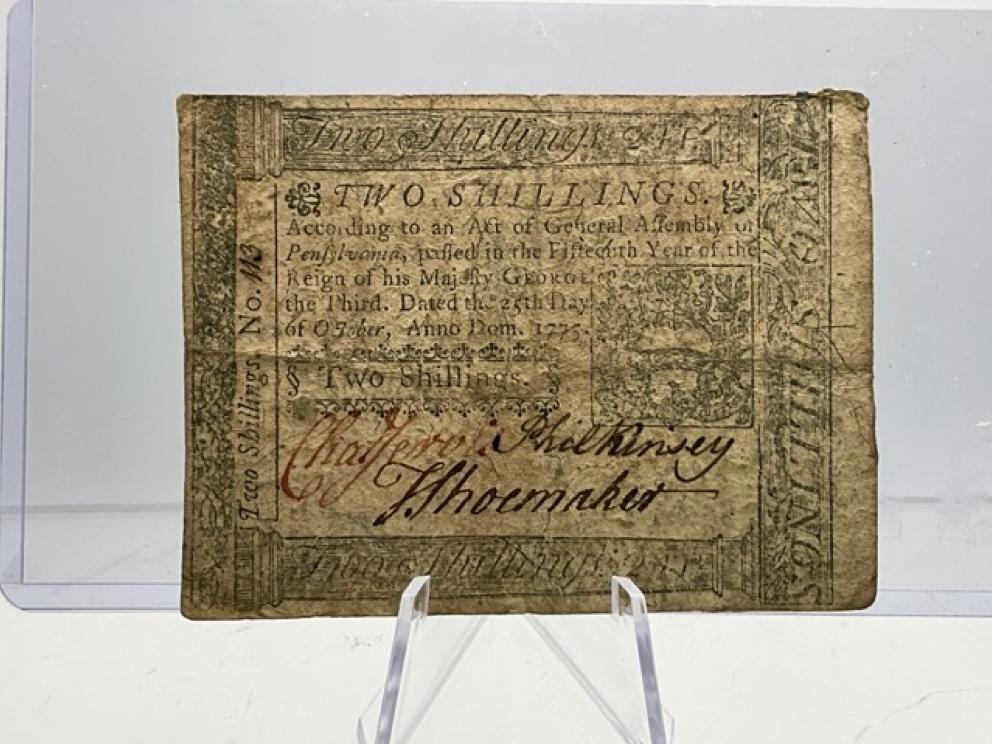 Two Shillings.
TWO SHILLINGS.
According to an Act of General Assembly of
Pensylvania, passed in the Fifteenth Year of the
Reign of his Majesty GEORGE
the Third. Dated the 25th Day
of October, Anno Dom. 1775.
§ Two Shillings. §
Phil Kinsey
Shoemaker
Two Shillings.
Two Shillings. No.
TWO SHILLINGS